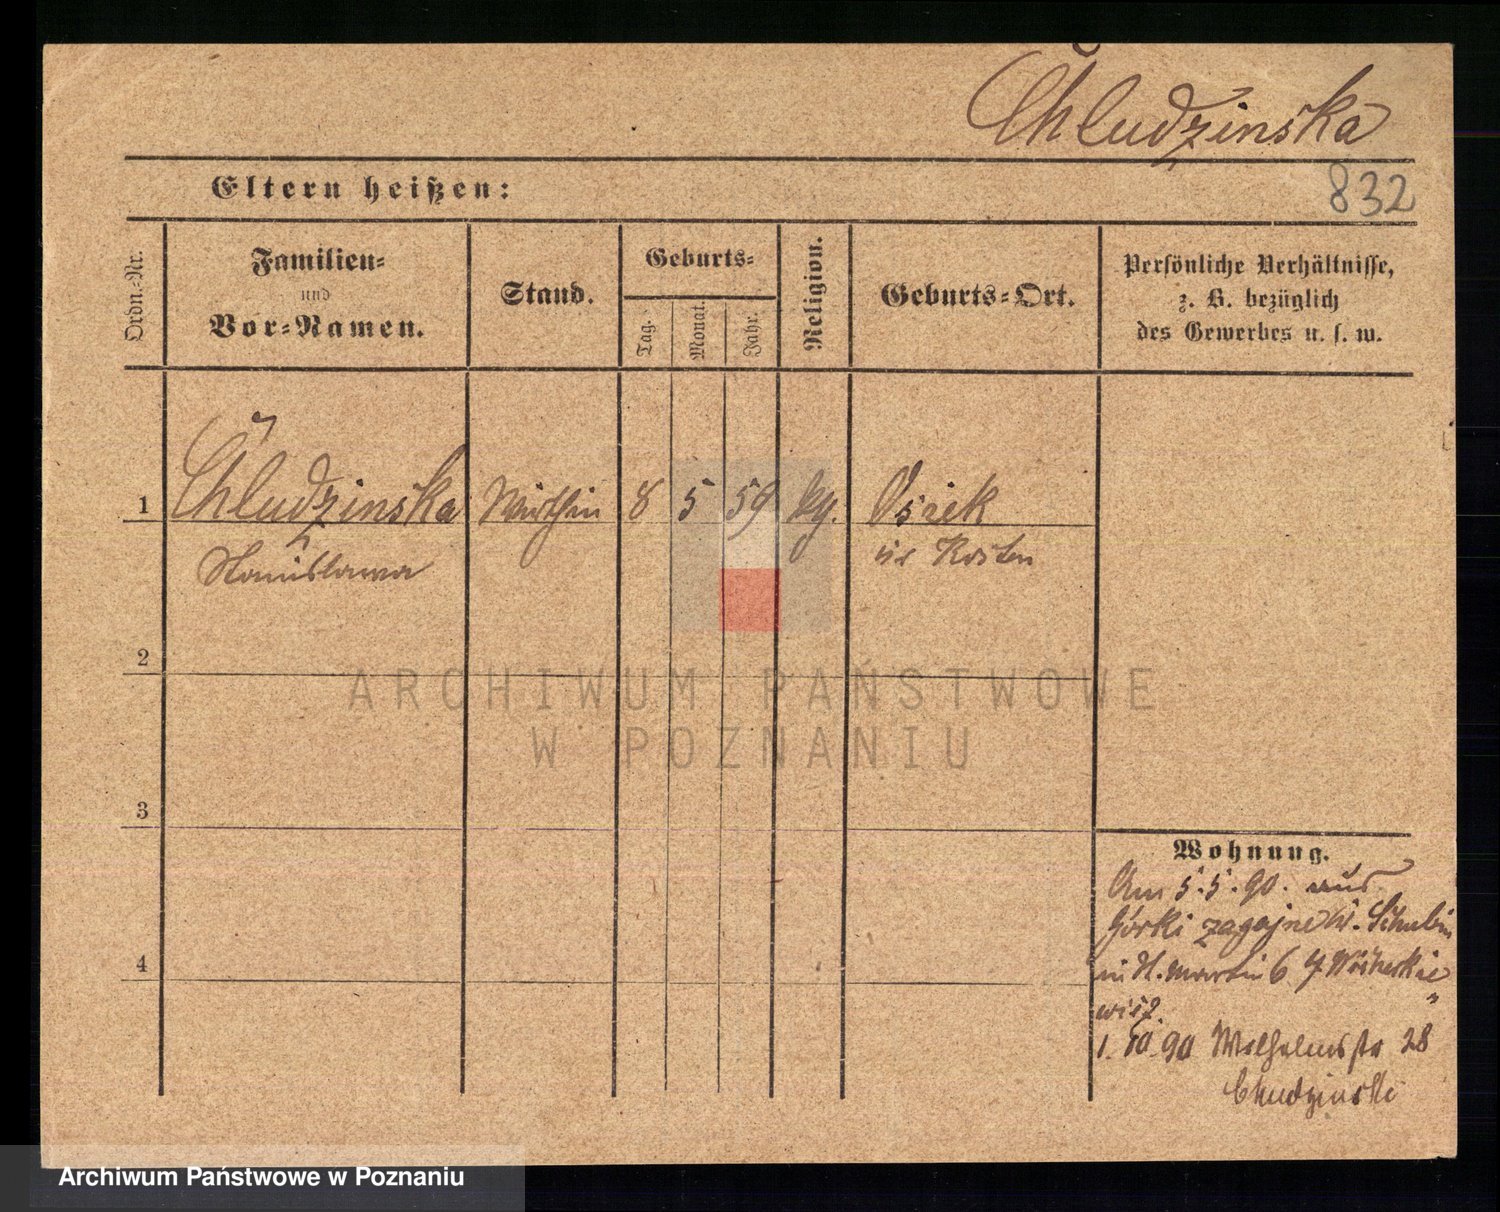 Chludzinska
Eltern heißen:
832
Ordn.-Nr.
Familien-
und
Vor-Namen.
Stand.
Geburts-
Tag.
Monat.
Jahr.
Religion.
Geburts-Ort.
Persönliche Verhältnisse,
z. B. bezüglich
des Gewerbes u. s. w.
1
Chludzinska
Wirthin
8
5
59
Osiek
Stanislawa
Kosten
2
ARCHIWUM PAŃSTWOWE
W POZNANIU
3
Wohnung.
Am 5.5.90. aus
Górki zagajne Schubin
in St. Martin 6
1.10.90 Wilhelmstr 28
Chludzinski
4
Archiwum Państwowe w Poznaniu